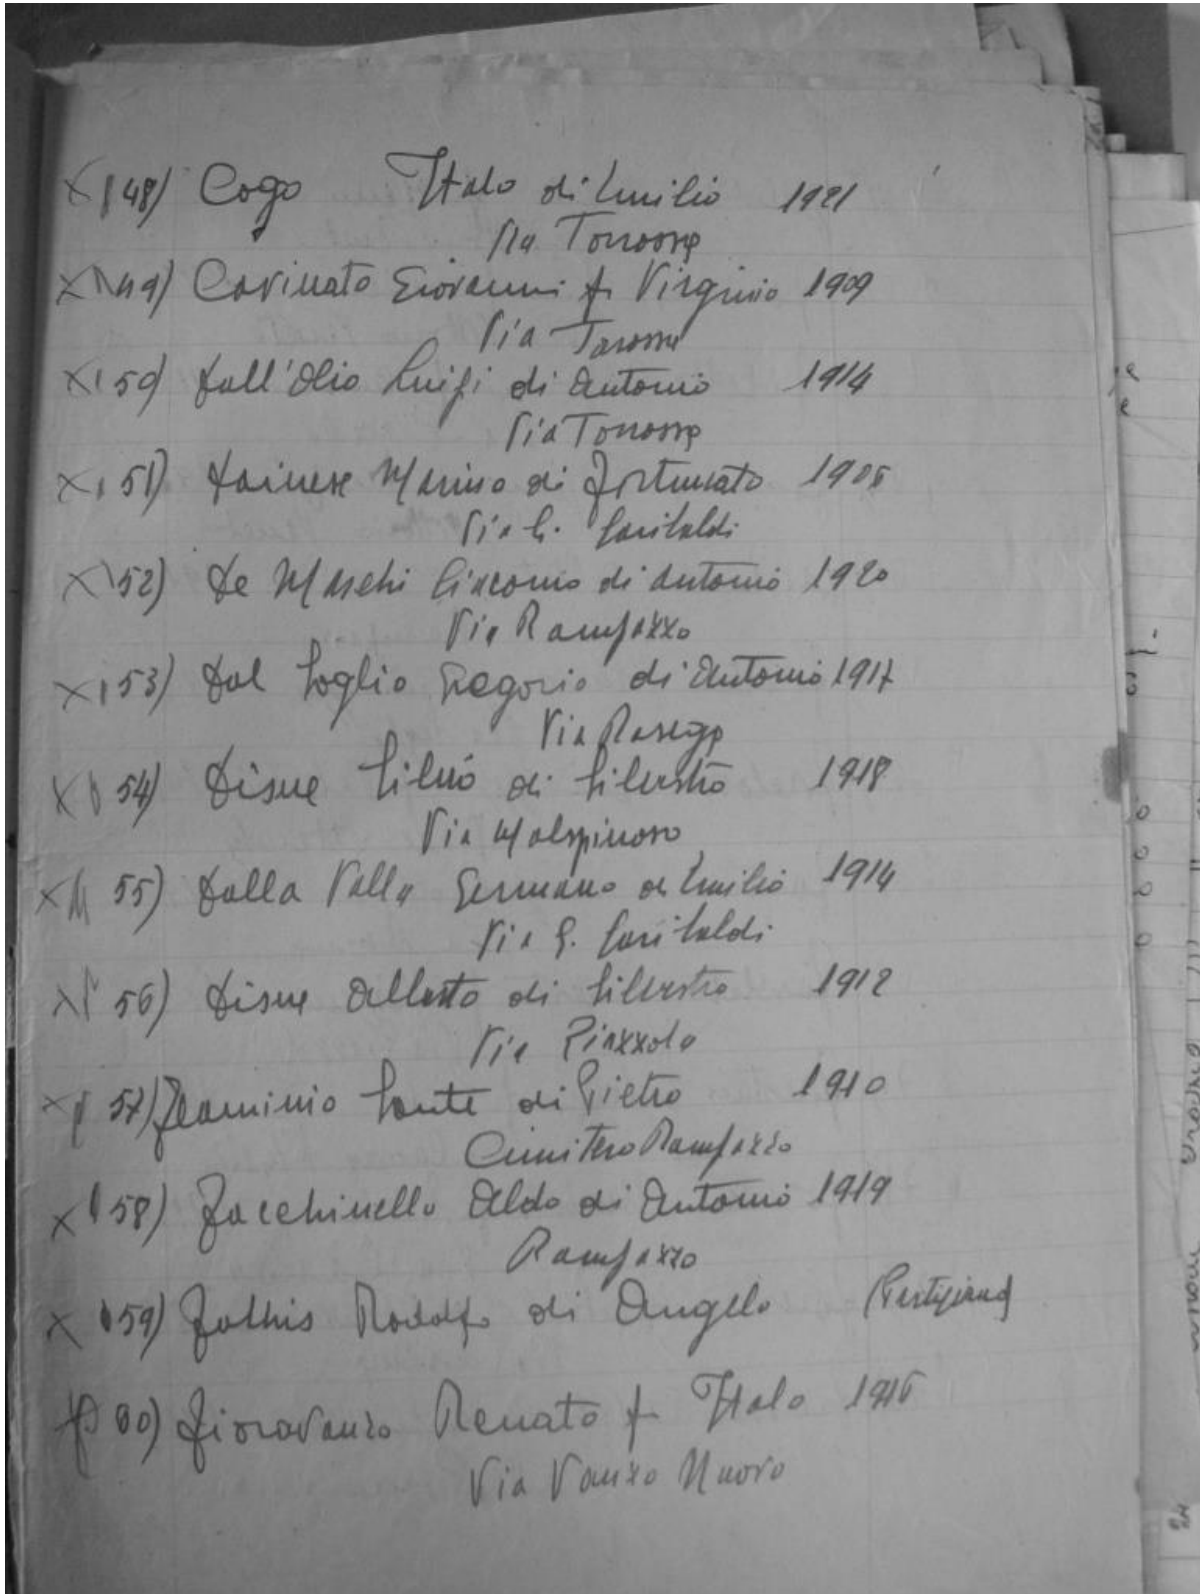 X 48) Cogo Italo di Emilio 1921
Via Torrossa
X 49) Cavinato Giovanni f. Virginio 1909
Via Tarossa
X 50) Dall'Olio Luigi di Antonio 1914
Via Torrossa
X 51) Dainese Marino di Fortunato
Via G. Garibaldi
X 52) De Marchi Giacomo di Antonio 1920
Via Rampazzo
X 53) Dal Soglio Gregorio di Antonio 1917
Via Rasega
X 54) Disue Silvio di Silvestro 1918
Via Malspinoso
X 55) Dalla Valla Germano di Emilio 1914
Via G. Garibaldi
X 56) Disue Alberto di Silvestro 1912
Via Piazzola
X 57) Flaminio Sante di Pietro 1910
Cimitero Rampazzo
X 58) Facchinello Aldo di Antonio 1919
Rampazzo
X 59) Rodolfo di Angelo (Partigiano)
60) Fioravanzo Renato f. Italo
Via Vanzo Nuovo